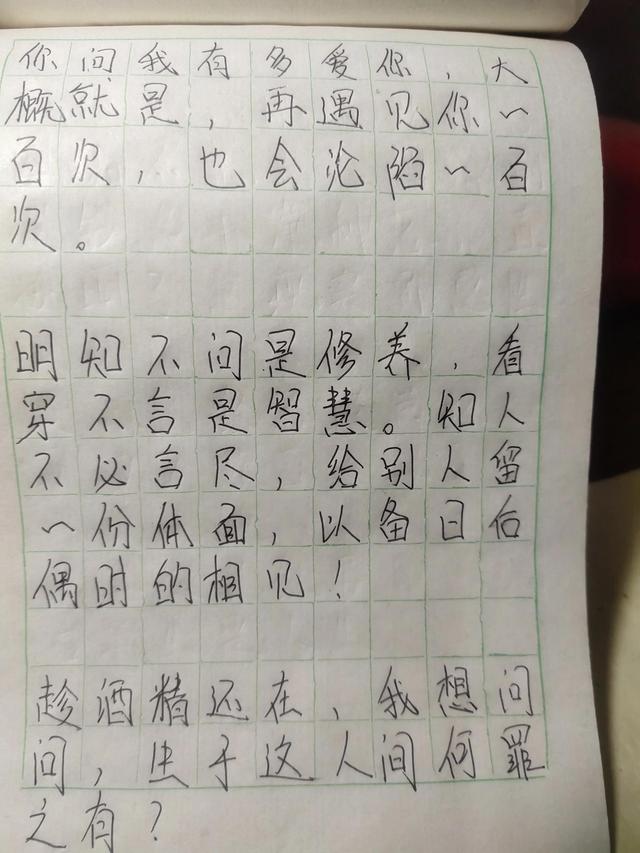 你问我有多爱你，大
概就是，再遇见你一
百次，也会沦陷一百
次。
明知不问是修养，看
穿不言是智慧。知人
不必言尽，给别人留
一份体面，以备日后
偶时的相见！
趁酒精还在，我想问
问，生于这人间何罪
之有？